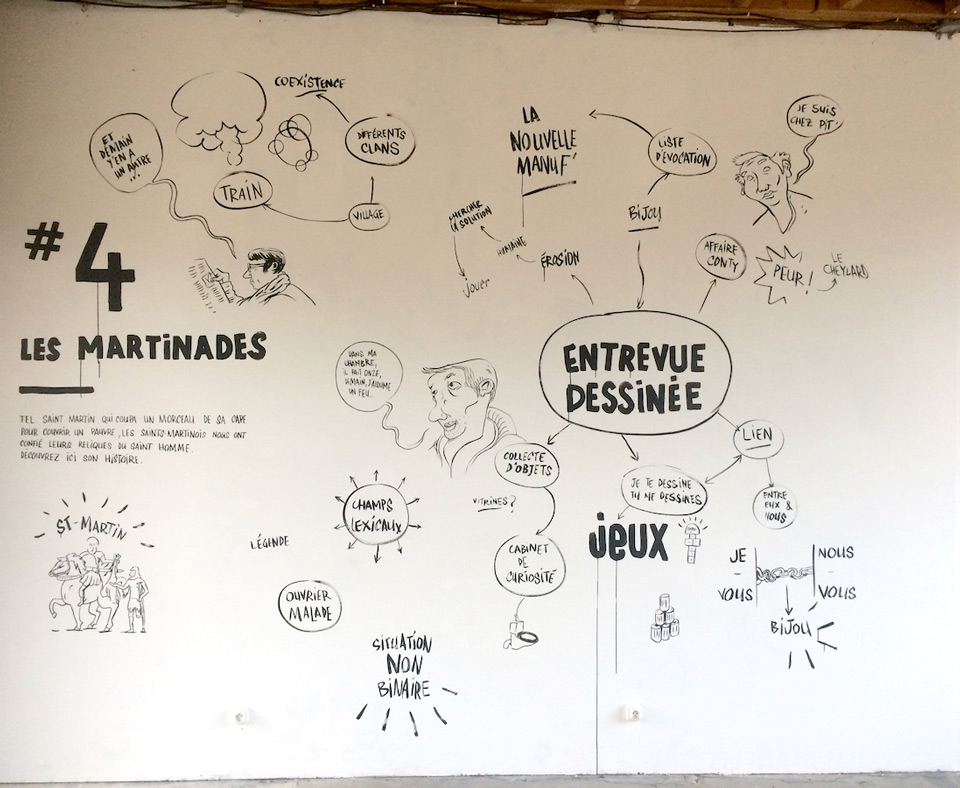 COEXISTENCE
ET
DEMAIN
Y'EN A
UN AUTRE
...
DIFFÉRENTS
CLANS
TRAIN
VILLAGE
#4
LES MARTINADES
TEL SAINT MARTIN QUI COUPA UN MORCEAU DE SA CAPE
POUR COUVRIR UN PAUVRE, LES SAINTS-MARTINOIS NOUS ONT
CONFIÉ LEURS RELIQUES DU SAINT HOMME.
DÉCOUVREZ ICI SON HISTOIRE.
ST-MARTIN
LA
NOUVELLE
MANUF'
LISTE
D'ÉVOCATION
JE SUIS
CHEZ PIT'
BIJOU
LA SOLUTION
HUMAINE
ÉROSION
Jouer
AFFAIRE
CONTY
PEUR!
LE
CHEYLARD
ENTREVUE
DESSINÉE
DANS MA
CHAMBRE,
IL FAIT ONZE,
DEMAIN, J'ALLUME
UN FEU...
COLLECTE
D'OBJETS
LIEN
JE TE DESSINE
TU ME DESSINES
ENTRE
EUX &
NOUS
VITRINES?
CHAMPS
LEXICAUX
LÉGENDE
OUVRIER
MALADE
SITUATION
NON
BINAIRE
CABINET
DE
CURIOSITÉ
jeux
JE
-
VOUS
NOUS
-
VOUS
BIJOU